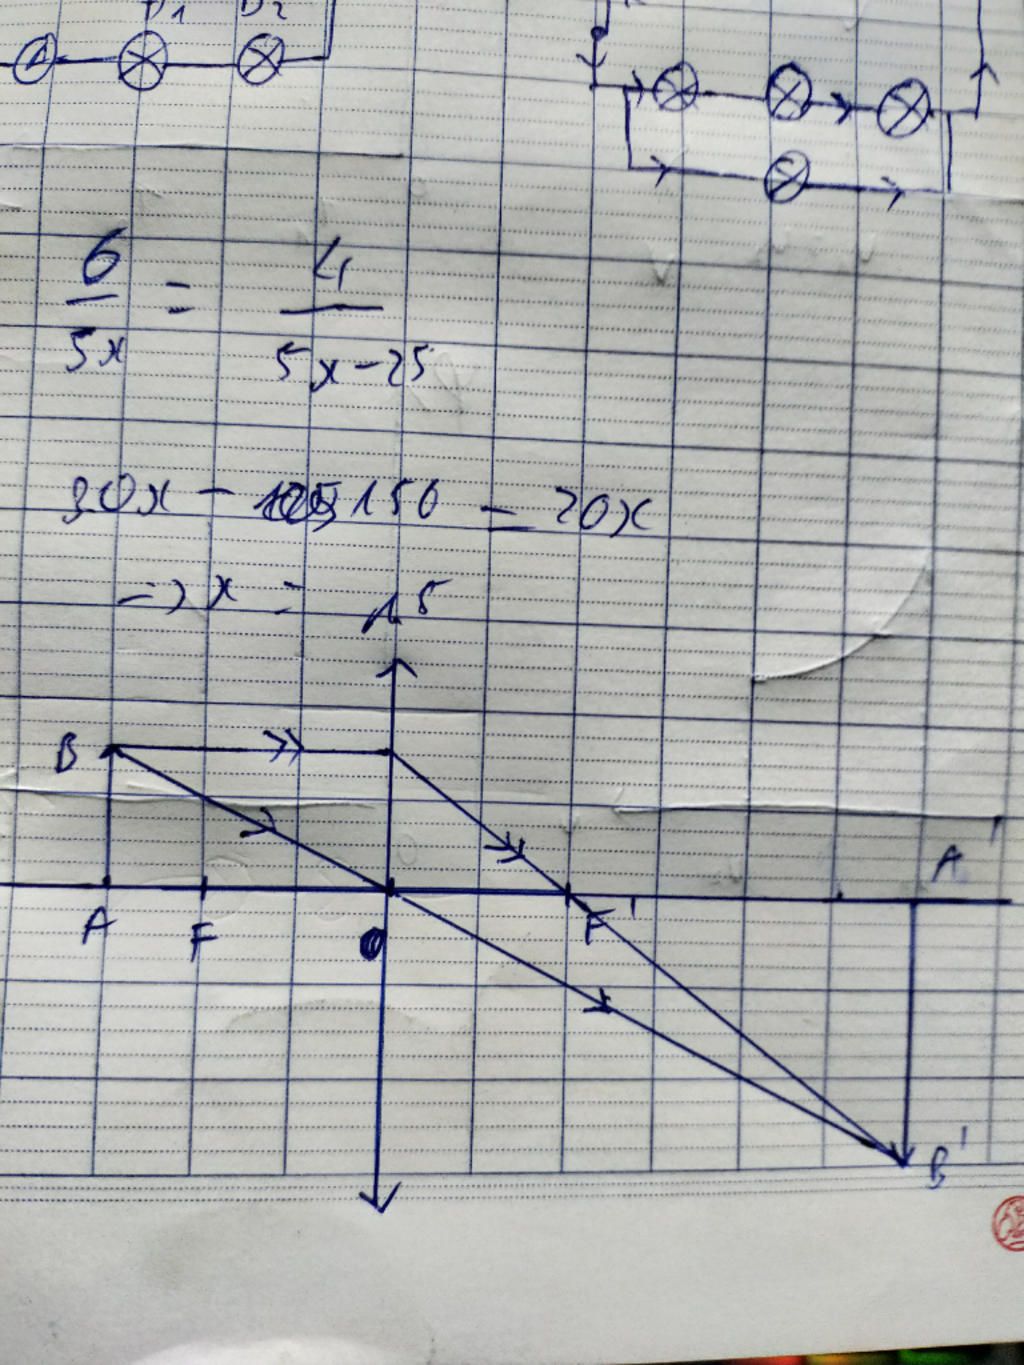 D1 D2
A
6/5x = 4/5x-25
30x - 150 = 20x
=> x = 15
B
A'
A F O F'
B'